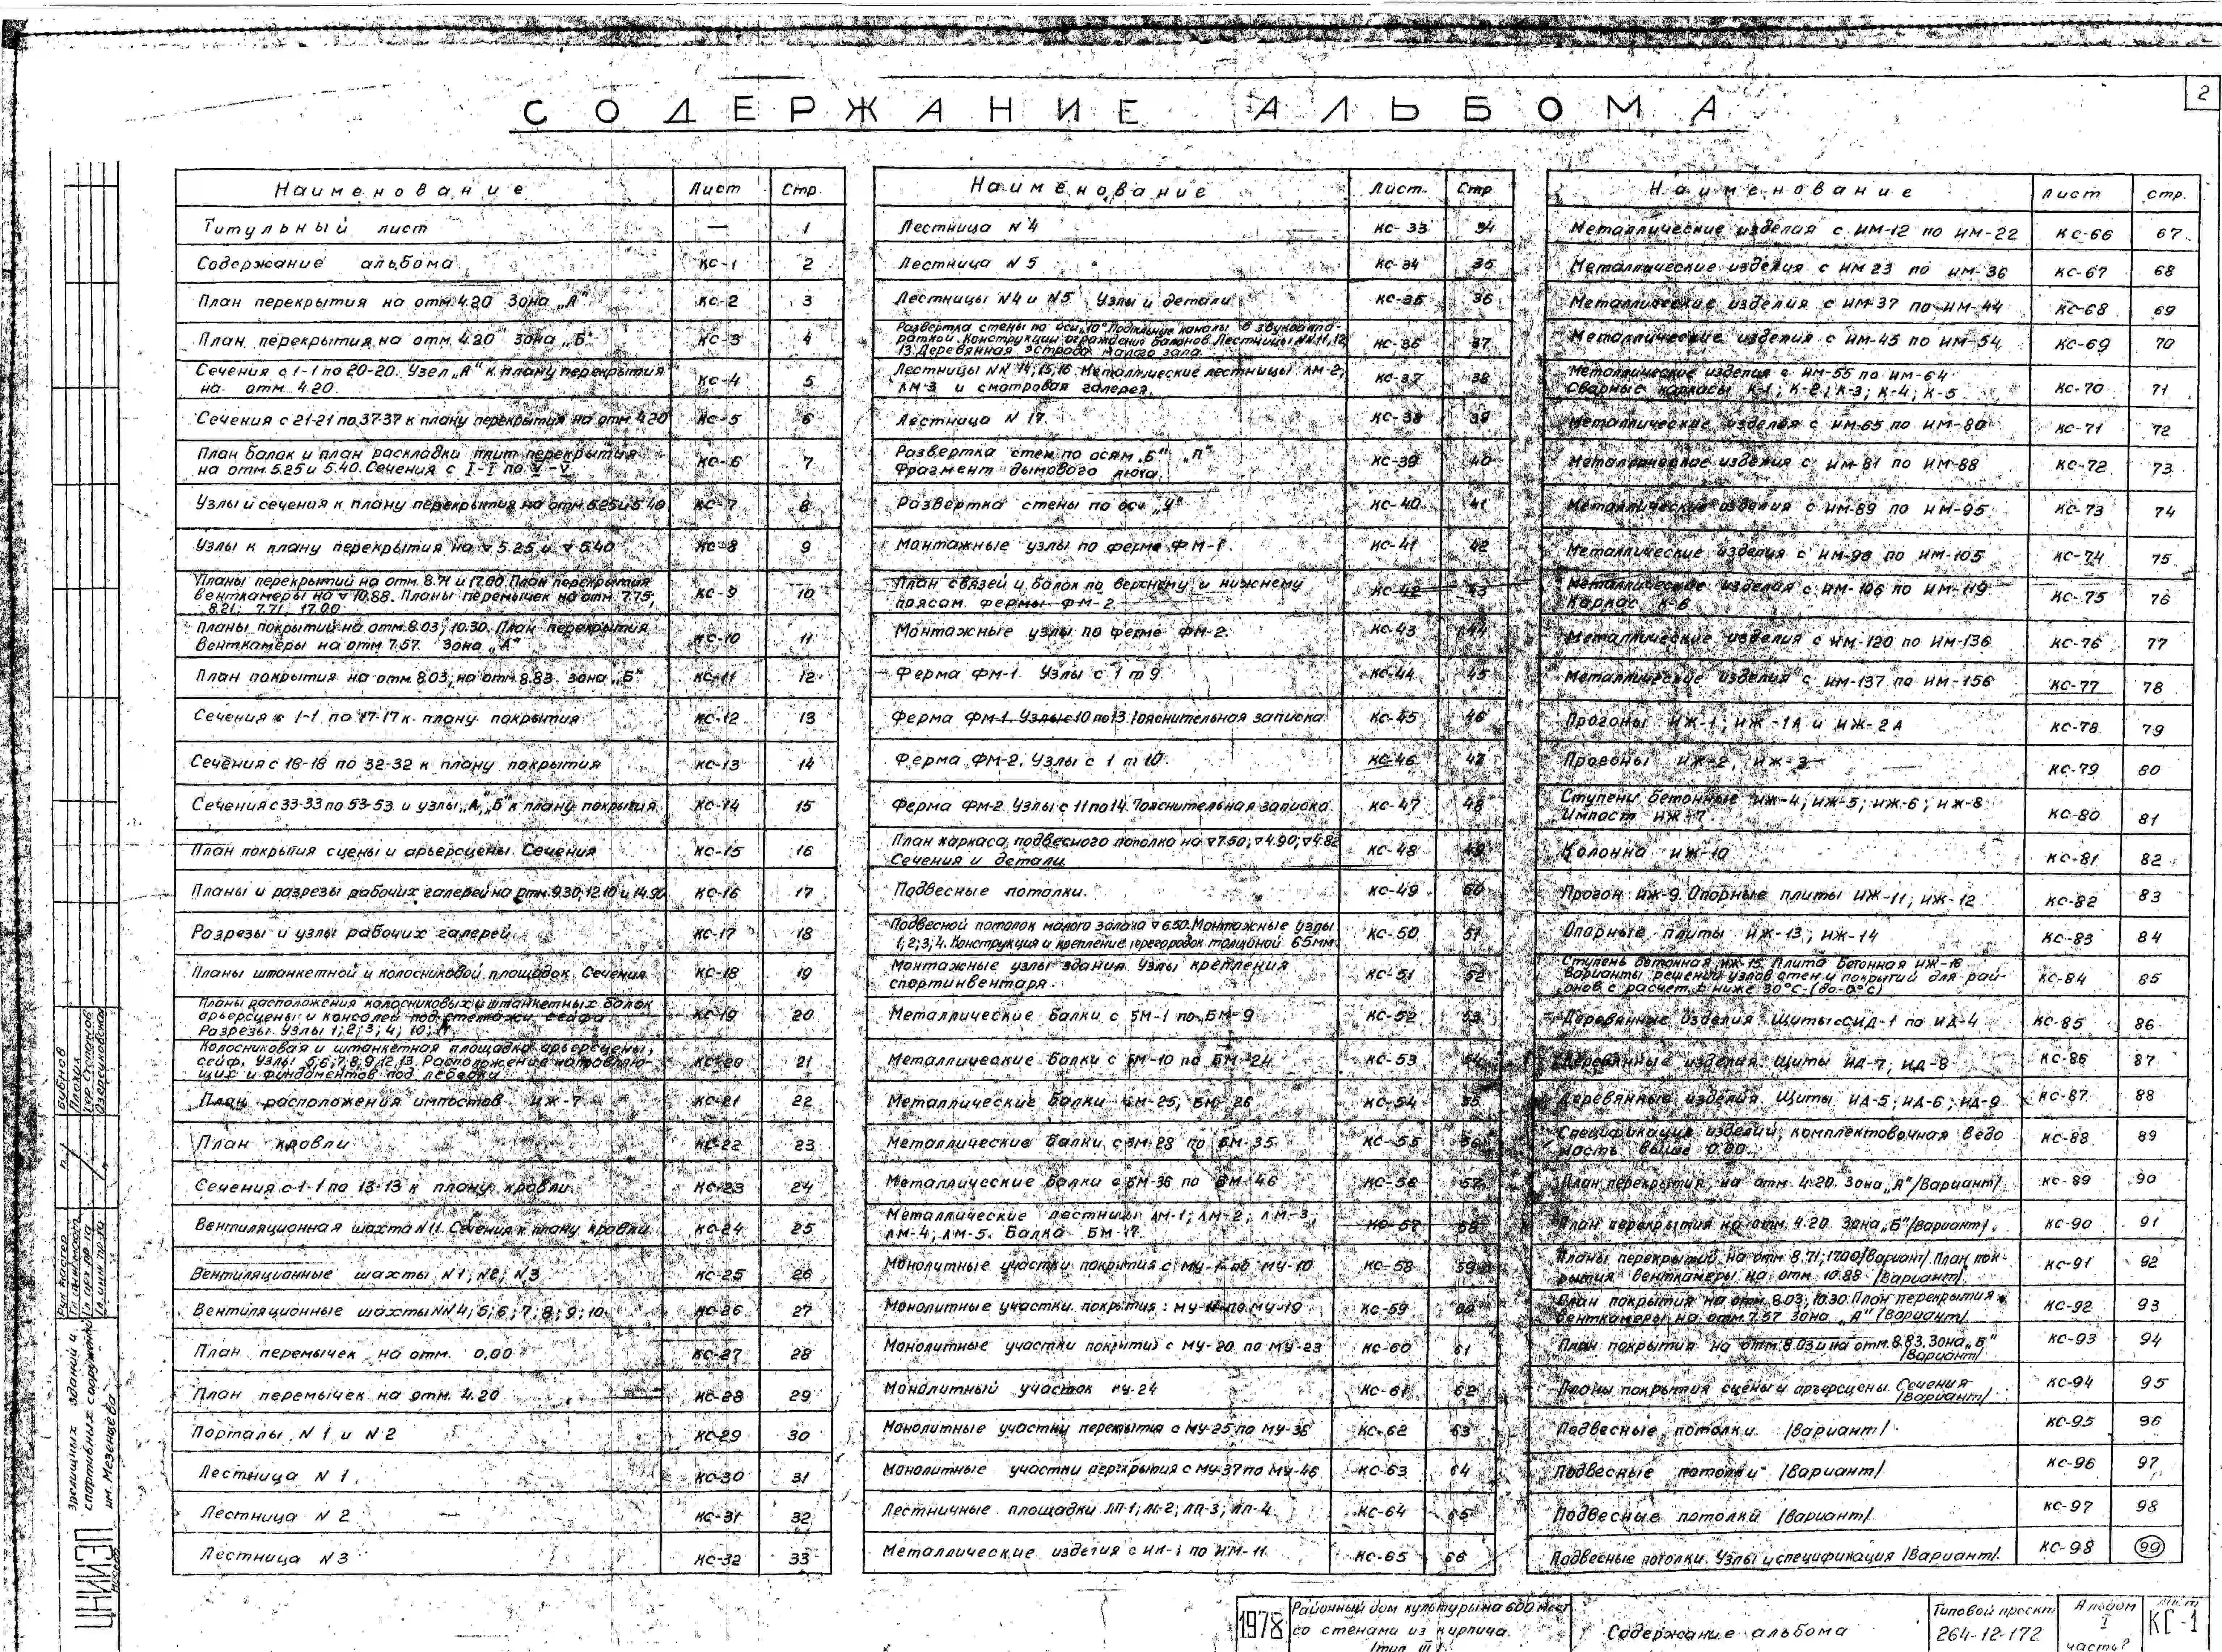 2
СОДЕРЖАНИЕ АЛЬБОМА
Наименование Лист Стр.
Титульный лист — 1
Содержание альбома КС-1 2
План перекрытия на отм. 4.20 Зона „А" КС-2 3
План перекрытия на отм. 4.20 Зона „Б" КС-3 4
Сечения с 1-1 по 20-20. Узел „А" к плану перекрытия
на отм. 4.20. КС-4 5
Сечения с 21-21 по 37-37 к плану перекрытия на отм. 4.20 КС-5 6
План балок и план раскладки плит перекрытия
на отм. 5.25 и 5.40. Сечения с I-I по V-V КС-6 7
Узлы и сечения к плану перекрытия на отм. 5.25 и 5.40 КС-7 8
Узлы к плану перекрытия на ▽ 5.25 и ▽ 5.40 КС-8 9
Планы перекрытий на отм. 8.71 и 17.00. План перекрытия
венткамеры на ▽ 10.88. Планы перемычек на отм. 7.75;
8.21; 7.71; 17.00 КС-9 10
Планы покрытий на отм. 8.03; 10.30. План перекрытия
венткамеры на отм. 7.57. Зона „А" КС-10 11
План покрытия на отм. 8.03, на отм. 8.83. зона „Б" КС-11 12
Сечения с 1-1 по 17-17 к плану покрытия КС-12 13
Сечения с 18-18 по 32-32 к плану покрытия КС-13 14
Сечения с 33-33 по 53-53 и узлы „А", „Б" к плану покрытия КС-14 15
План покрытия сцены и арьерсцены. Сечения КС-15 16
Планы и разрезы рабочих галерей на отм. 9.30; 12.10 и 14.90 КС-16 17
Разрезы и узлы рабочих галерей. КС-17 18
Планы штанкетной и колосниковой площадок. Сечения КС-18 19
Планы расположения колосниковых и штанкетных балок
арьерсцены и консолей под стеллажи сейфа.
Разрезы. Узлы 1; 2; 3; 4; 10; 11. КС-19 20
Колосниковая и штанкетная площадка арьерсцены,
сейф. Узлы 5; 6; 7; 8; 9; 12; 13. Расположение направляю-
щих и фундаментов под лебедки. КС-20 21
План расположения импостов ИЖ-7 КС-21 22
План кровли КС-22 23
Сечения с 1-1 по 13-13 к плану кровли КС-23 24
Вентиляционная шахта N11. Сечения к плану кровли КС-24 25
Вентиляционные шахты N1; N2; N3 КС-25 26
Вентиляционные шахты NN 4; 5; 6; 7; 8; 9; 10 КС-26 27
План перемычек на отм. 0,00 КС-27 28
План перемычек на отм. 4.20 КС-28 29
Порталы N1 и N2 КС-29 30
Лестница N1. КС-30 31
Лестница N2 КС-31 32
Лестница N3 КС-32 33
Наименование Лист. Стр
Лестница N4 КС-33 34
Лестница N5 КС-34 35
Лестницы N4 и N5. Узлы и детали КС-35 36
Развертка стены по оси „10". Подпольные каналы в звукоаппа-
ратной. Конструкции ограждения балконов. Лестницы NN 11, 12,
13. Деревянная эстрада малого зала. КС-36 37
Лестницы NN 14; 15; 16. Металлические лестницы ЛМ-2;
ЛМ-3 и смотровая галерея. КС-37 38
Лестница N17. КС-38 39
Развертка стен по осям „Б" „П"
Фрагмент дымового люка. КС-39 40
Развертка стены по оси „У" КС-40 41
Монтажные узлы по ферме ФМ-1. КС-41 42
План связей и балок по верхнему и нижнему
поясам фермы ФМ-2. КС-42 43
Монтажные узлы по ферме ФМ-2. КС-43 44
Ферма ФМ-1. Узлы с 1 п 9. КС-44 45
Ферма ФМ-1. Узлы с 10 по 13. Пояснительная записка КС-45 46
Ферма ФМ-2. Узлы с 1 п 10. КС-46 47
Ферма ФМ-2. Узлы с 11 по 14. Пояснительная записка. КС-47 48
План каркаса подвесного потолка на ▽ 7.50; ▽ 4.90; ▽ 4.82
Сечения и детали. КС-48 49
Подвесные потолки. КС-49 50
Подвесной потолок малого зала на ▽ 6.50. Монтажные узлы
1; 2; 3; 4. Конструкция и крепление перегородок толщиной 65мм. КС-50 51
Монтажные узлы здания. Узлы крепления
спортинвентаря. КС-51 52
Металлические балки с БМ-1 по БМ-9 КС-52 53
Металлические балки с БМ-10 по БМ-24 КС-53 54
Металлические балки БМ-25; БМ-26 КС-54 55
Металлические балки с БМ-28 по БМ-35 КС-55 56
Металлические балки с БМ-36 по БМ-46 КС-56 57
Металлические лестницы ЛМ-1; ЛМ-2; ЛМ-3;
ЛМ-4; ЛМ-5. Балка БМ-17. КС-57 58
Монолитные участки покрытия с МУ-1 по МУ-10 КС-58 59
Монолитные участки покрытия: МУ-11 по МУ-19 КС-59 60
Монолитные участки покрытия с МУ-20 по МУ-23 КС-60 61
Монолитный участок МУ-24 КС-61 62
Монолитные участки перекрытия с МУ-25 по МУ-36 КС-62 63
Монолитные участки перекрытия с МУ-37 по МУ-46 КС-63 64
Лестничные площадки ЛП-1; ЛП-2; ЛП-3; ЛП-4 КС-64 65
Металлические изделия с ИМ-1 по ИМ-11 КС-65 66
Наименование Лист стр.
Металлические изделия с ИМ-12 по ИМ-22 КС-66 67
Металлические изделия с ИМ 23 по ИМ-36 КС-67 68
Металлические изделия с ИМ-37 по ИМ-44 КС-68 69
Металлические изделия с ИМ-45 по ИМ-54 КС-69 70
Металлические изделия с ИМ-55 по ИМ-64.
Сварные каркасы К-1; К-2; К-3; К-4; К-5 КС-70 71
Металлические изделия с ИМ-65 по ИМ-80 КС-71 72
Металлические изделия с ИМ-81 по ИМ-88 КС-72 73
Металлические изделия с ИМ-89 по ИМ-95 КС-73 74
Металлические изделия с ИМ-96 по ИМ-105 КС-74 75
Металлические изделия с ИМ-106 по ИМ-119
Каркас К-6 КС-75 76
Металлические изделия с ИМ-120 по ИМ-136 КС-76 77
Металлические изделия с ИМ-137 по ИМ-156 КС-77 78
Прогоны ИЖ-1; ИЖ-1А и ИЖ-2А КС-78 79
Прогоны ИЖ-2, ИЖ-3 КС-79 80
Ступени бетонные ИЖ-4; ИЖ-5; ИЖ-6; ИЖ-8
Импост ИЖ-7. КС-80 81
Колонна ИЖ-10 КС-81 82
Прогон ИЖ-9. Опорные плиты ИЖ-11; ИЖ-12 КС-82 83
Опорные плиты ИЖ-13; ИЖ-14 КС-83 84
Ступень бетонная ИЖ-15. Плита бетонная ИЖ-16
Варианты решений узлов стен и покрытий для рай-
онов с расчет. t ниже 30°С-(до-0°С) КС-84 85
Деревянные изделия. Щиты с ИД-1 по ИД-4 КС-85 86
Деревянные изделия. Щиты ИД-7; ИД-8 КС-86 87
Деревянные изделия. Щиты ИД-5; ИД-6; ИД-9 КС-87 88
Спецификация изделий, комплектовочная ведо
мость выше 0.00. КС-88 89
План перекрытия на отм. 4.20. Зона „А" /Вариант/ КС-89 90
План перекрытия на отм. 4.20. Зона „Б" /Вариант/. КС-90 91
Планы перекрытий на отм. 8.71; 17.00 /Вариант/. План пок-
рытия венткамеры на отм. 10.88 /Вариант/. КС-91 92
План покрытия на отм. 8.03; 10.30. План перекрытия
венткамеры на отм. 7.57 Зона „А" /Вариант/ КС-92 93
План покрытия на отм. 8.03 и на отм. 8.83. Зона „Б"
/Вариант/ КС-93 94
Планы покрытия сцены и арьерсцены. Сечения
/Вариант/ КС-94 95
Подвесные потолки. /Вариант/. КС-95 96
Подвесные потолки /Вариант/. КС-96 97
Подвесные потолки /Вариант/. КС-97 98
Подвесные потолки. Узлы и спецификация /Вариант/. КС-98 99
ЦНИИЭП
МОСКВА
зрелищных зданий и
спортивных сооружений
им. Мезенцева
Бубнов
1978
Районный дом культуры на 600 мест
со стенами из кирпича.
(тип III)
Содержание альбома
Типовой проект
264-12-172
Альбом
I
часть 2
Лист
КС-1